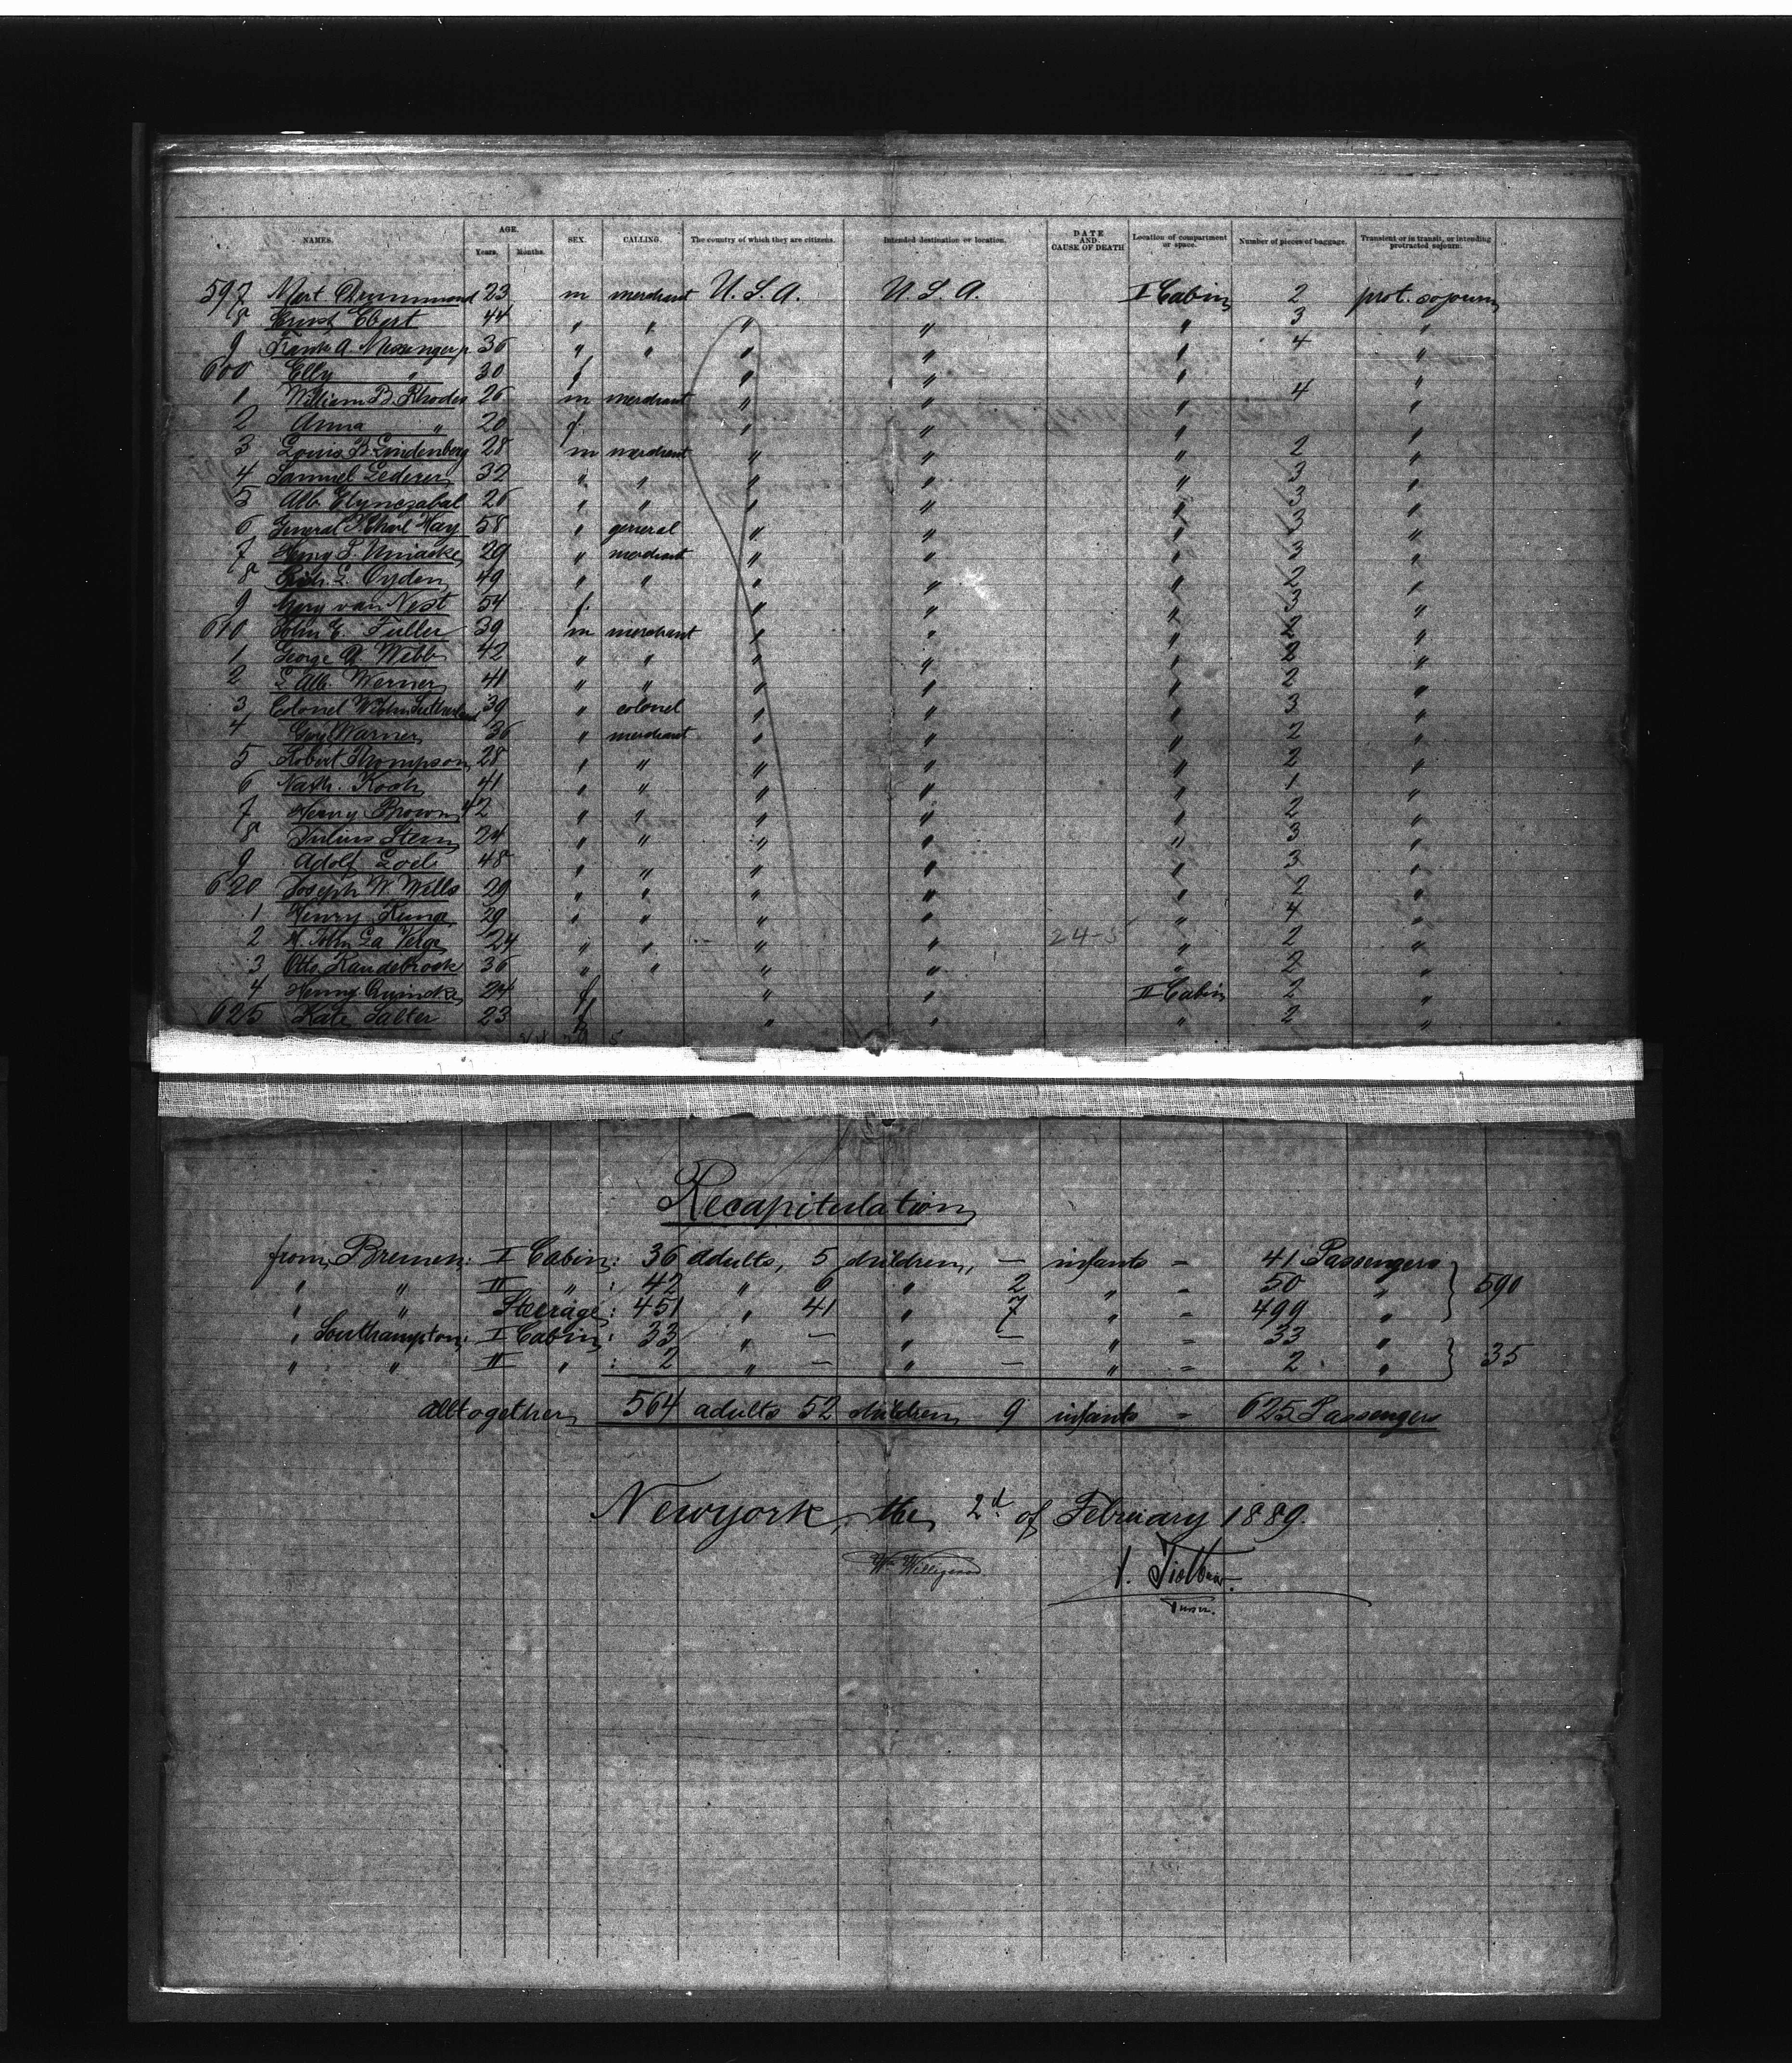 NAMES. AGE. Years. Months. SEX. CALLING. The country of which they are citizens. Intended destination or location. DATE AND CAUSE OF DEATH Location of compartment or space. Number of pieces of baggage. Transient or in transit, or intending protracted sojourn.
597 Mort Drummond 23 m merchant U. S. A. U. S. A. I Cabin 2 prot. sojourn
8 Ernst Ebert 44 " " " " " 3 "
9 Frank A. Messenger jr 36 " " " " " 4 "
600 Elly " 30 f " " " "
1 William B. Rhodes 26 m merchant " " " 4 "
2 Anna " 20 f. " " " "
3 Louis B. Lindenberg 28 m merchant " " " 2 "
4 Samuel Lederer 32 " " " " " 3 "
5 Alb. 26 " " " " " 3 "
6 General Hay 58 " general " " " 3 "
7 Henry S. Uniacke 29 " merchant " " " 3 "
8 Ogden 49 " " " " " 2 "
9 Mary van Nest 54 f. " " " 3 "
610 John E. Fuller 39 m merchant " " " "
1 George Webb 42 " " " " " 2 "
2 Alb. Werner 41 " " " " " 2 "
3 Colonel Sutherland 39 " colonel " " " 3 "
4 Guy Warner 36 " merchant " " " 2 "
5 Robert Thompson 28 " " " " " 2 "
6 Nath. Koch 41 " " " " " 1 "
7 Henry Brown 42 " " " " " 2 "
8 Julius Stern 24 " " " " " 3 "
9 Adolf Loeb 48 " " " " " 3 "
620 Joseph W. Wells 29 " " " " " 2 "
1 Henry Runge 29 " " " " " 4 "
2 John La Verge 24 " " " " 24-5 " 2 "
3 Otto Randebrock 36 " " " " " 2 "
4 Henny Quincke 24 f " " II Cabin 2 "
625 Kate Salter 23 f " " " 2 "
Recapitulation
from Bremen: I Cabin: 36 adults, 5 children, — infants = 41 Passengers
" " II " : 42 " 6 " 2 " = 50 " } 590
" " Steerage: 451 " 41 " 7 " = 499 "
" Southampton: I Cabin: 33 " — " — " = 33 "
" " II " : 2 " — " — " = 2 " } 35
alltogether 564 adults 52 children 9 infants = 625 Passengers
Newyork, the 2d of February 1889.
Wm Willigerod